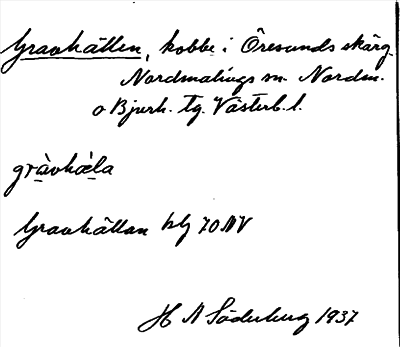 Gravhällen, kobbe i Öresunds skärg.
Nordmalings sn. Nordm.
o Bjurh. tg. Västerb. l.
gràvhæ̀la
Gravhällan kbl 70 NV
H N Söderberg 1937